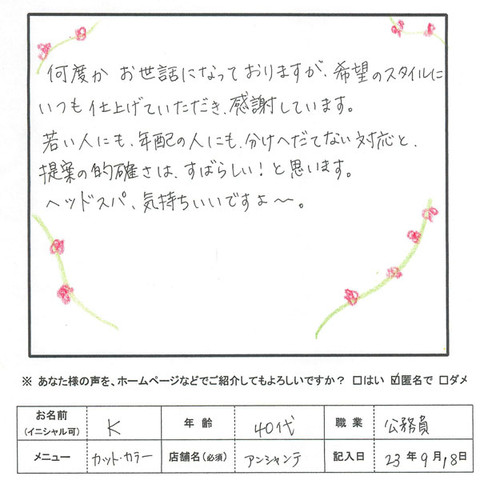 何度か お世話になっておりますが、希望のスタイルに
いつも仕上げていただき、感謝しています。
若い人にも、年配の人にも、分けへだてない対応と、
提案の的確さは、すばらしい!と思います。
ヘッドスパ、気持ちいいですよ〜。
※ あなた様の声を、ホームページなどでご紹介してもよろしいですか? □はい ☑匿名で □ダメ
お名前(イニシャル可) K 年齢 40代 職業 公務員
メニュー カット・カラー 店舗名(必須) アンシャンテ 記入日 23年9月18日